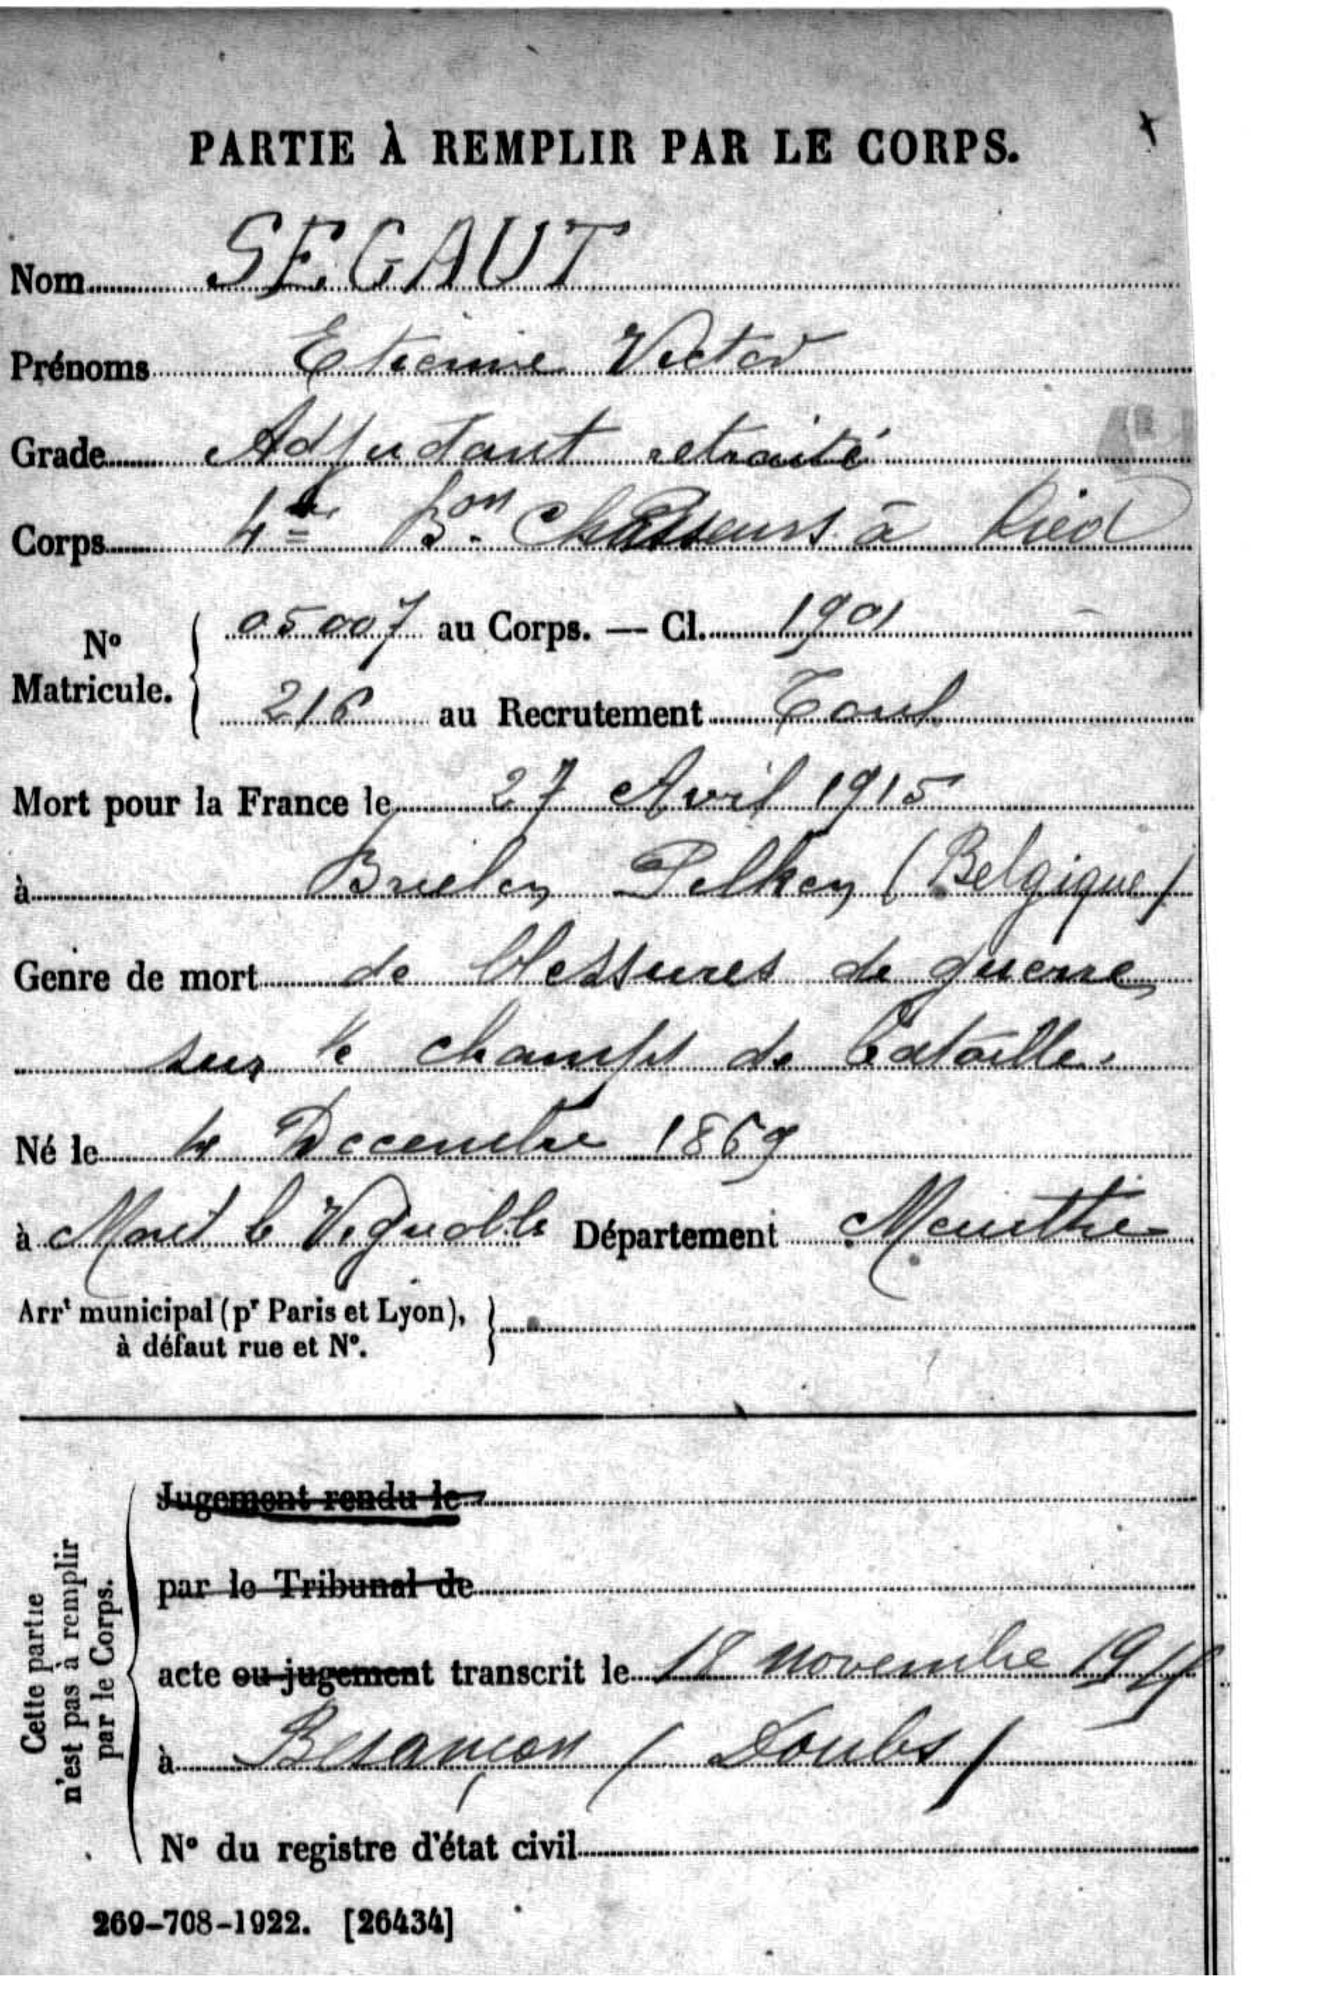 PARTIE À REMPLIR PAR LE CORPS.
Nom SEGAUT
Prénoms Etienne Victor
Grade Adjudant retraité
Corps 4e Bon Chasseurs à Pied
No Matricule. 05007 au Corps. — Cl. 1901
216 au Recrutement Toul
Mort pour la France le 27 Avril 1915
à Brielen Pelken (Belgique)
Genre de mort de blessures de guerre
sur le champs de bataille.
Né le 4 Decembre 1869
à Mont le Vignoble Département Meurthe
Arrt municipal (pr Paris et Lyon),
à défaut rue et No.
Cette partie
n'est pas à remplir
par le Corps.
Jugement rendu le
par le Tribunal de
acte ou jugement transcrit le 18 novembre
à Besançon (Doubs)
No du registre d'état civil
269-708-1922. [26434]